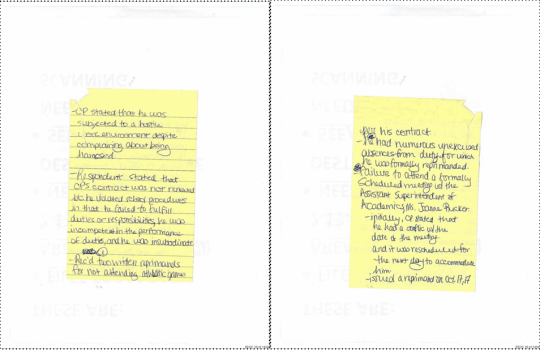 -CP stated that he was
subjected to a hostile
work environment despite
complaining about being
harassed
-Respondent stated that
CP's contract was not renewed
b/c he violated policy procedures
in that he failed to fulfill
duties or responsibilities, he was
incompetent in the performance
of duties, and he was insubordinate
-Rec'd two written reprimands
for not attending athletic game
his contract
-He had numerous unexcused
absences from duty for which
he was formally reprimanded.
Failure to attend a formally
scheduled meeting w/ the
Assistant Superintendent of
Academics, Ms.
-initially, CP stated that
he had a conflict w/ the
date of the meeting
and it was rescheduled for
the next day to accommodate
him
-issued a reprimand on Oct 17, 17
SCANNING
THESE ARE: